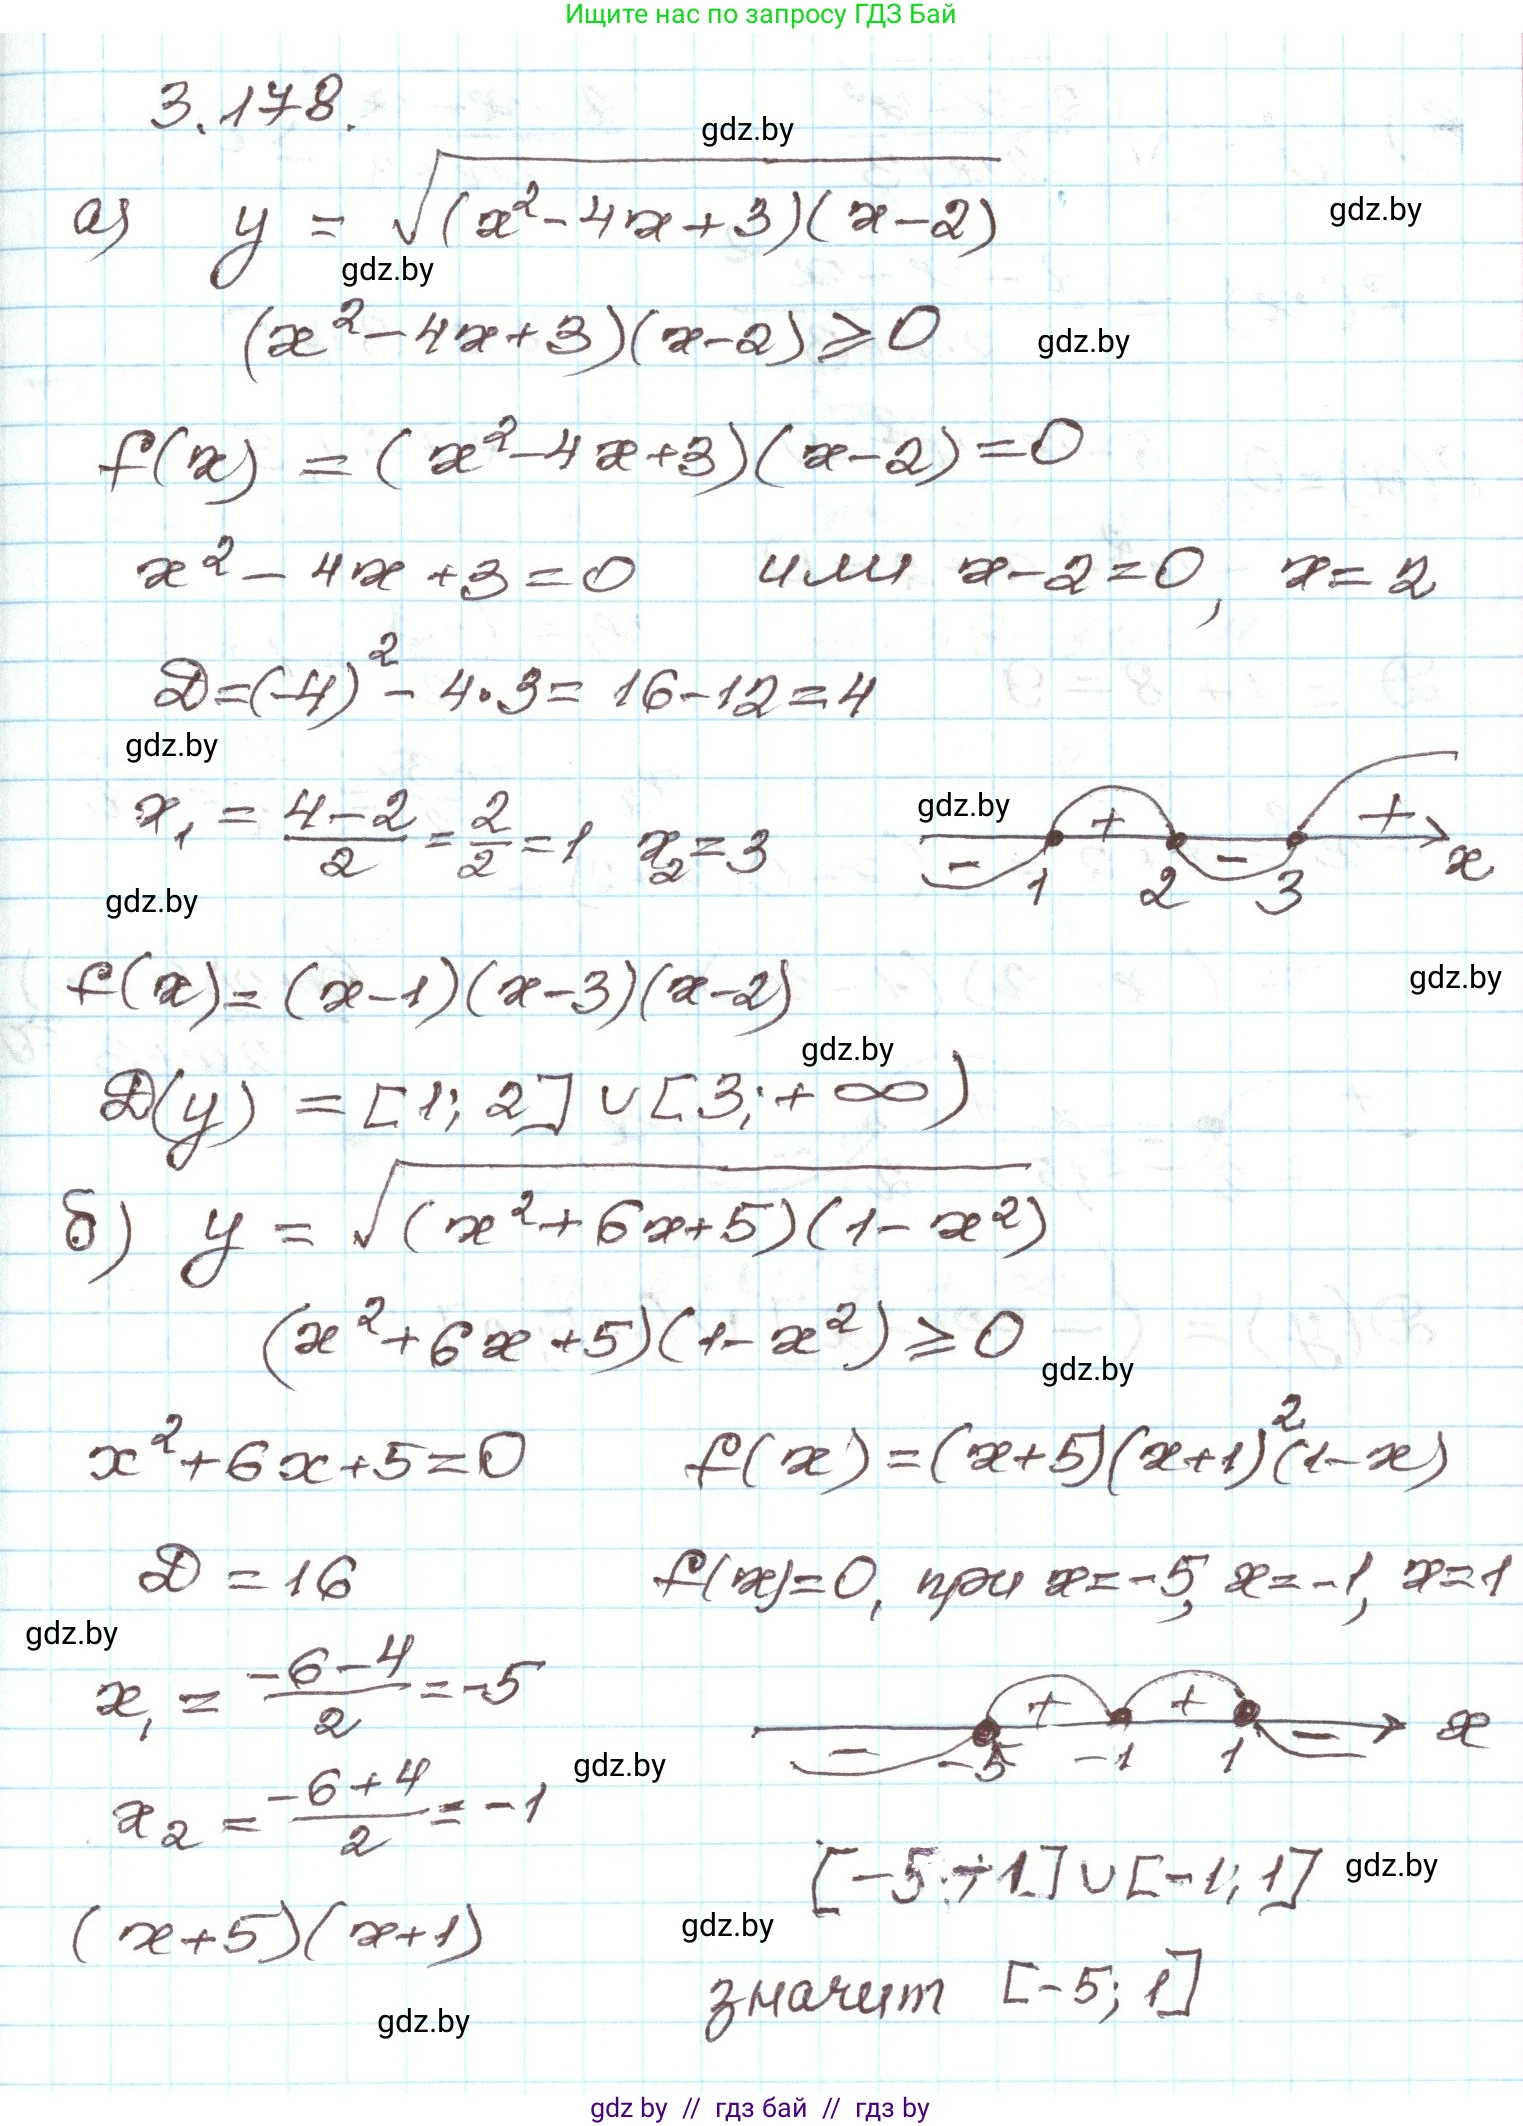 Ищите нас по запросу ГДЗ Бай
3.178.
gdz.by
а) y = √((x² - 4x + 3)(x - 2))
gdz.by
gdz.by
(x² - 4x + 3)(x - 2) ⩾ 0
gdz.by
f(x) = (x² - 4x + 3)(x - 2) = 0
x² - 4x + 3 = 0 или x - 2 = 0, x = 2
D = (-4)² - 4·3 = 16 - 12 = 4
gdz.by
x₁ = (4 - 2)/2 = 2/2 = 1 x₂ = 3
gdz.by
- + - +
1 2 3 x
gdz.by
f(x) = (x - 1)(x - 3)(x - 2)
gdz.by
gdz.by
D(y) = [1; 2] ∪ [3; + ∞)
б) y = √((x² + 6x + 5)(1 - x²))
(x² + 6x + 5)(1 - x²) ⩾ 0
gdz.by
x² + 6x + 5 = 0 f(x) = (x + 5)(x + 1)²(1 - x)
D = 16 f(x) = 0, при x = -5, x = -1, x = 1
gdz.by
x₁ = (-6 - 4)/2 = -5
- + + -
-5 -1 1 x
gdz.by
x₂ = (-6 + 4)/2 = -1
[-5; -1] ∪ [-1; 1]
gdz.by
(x + 5)(x + 1)
gdz.by
значит [-5; 1]
gdz.by
gdz by // гдз бай // гдз by